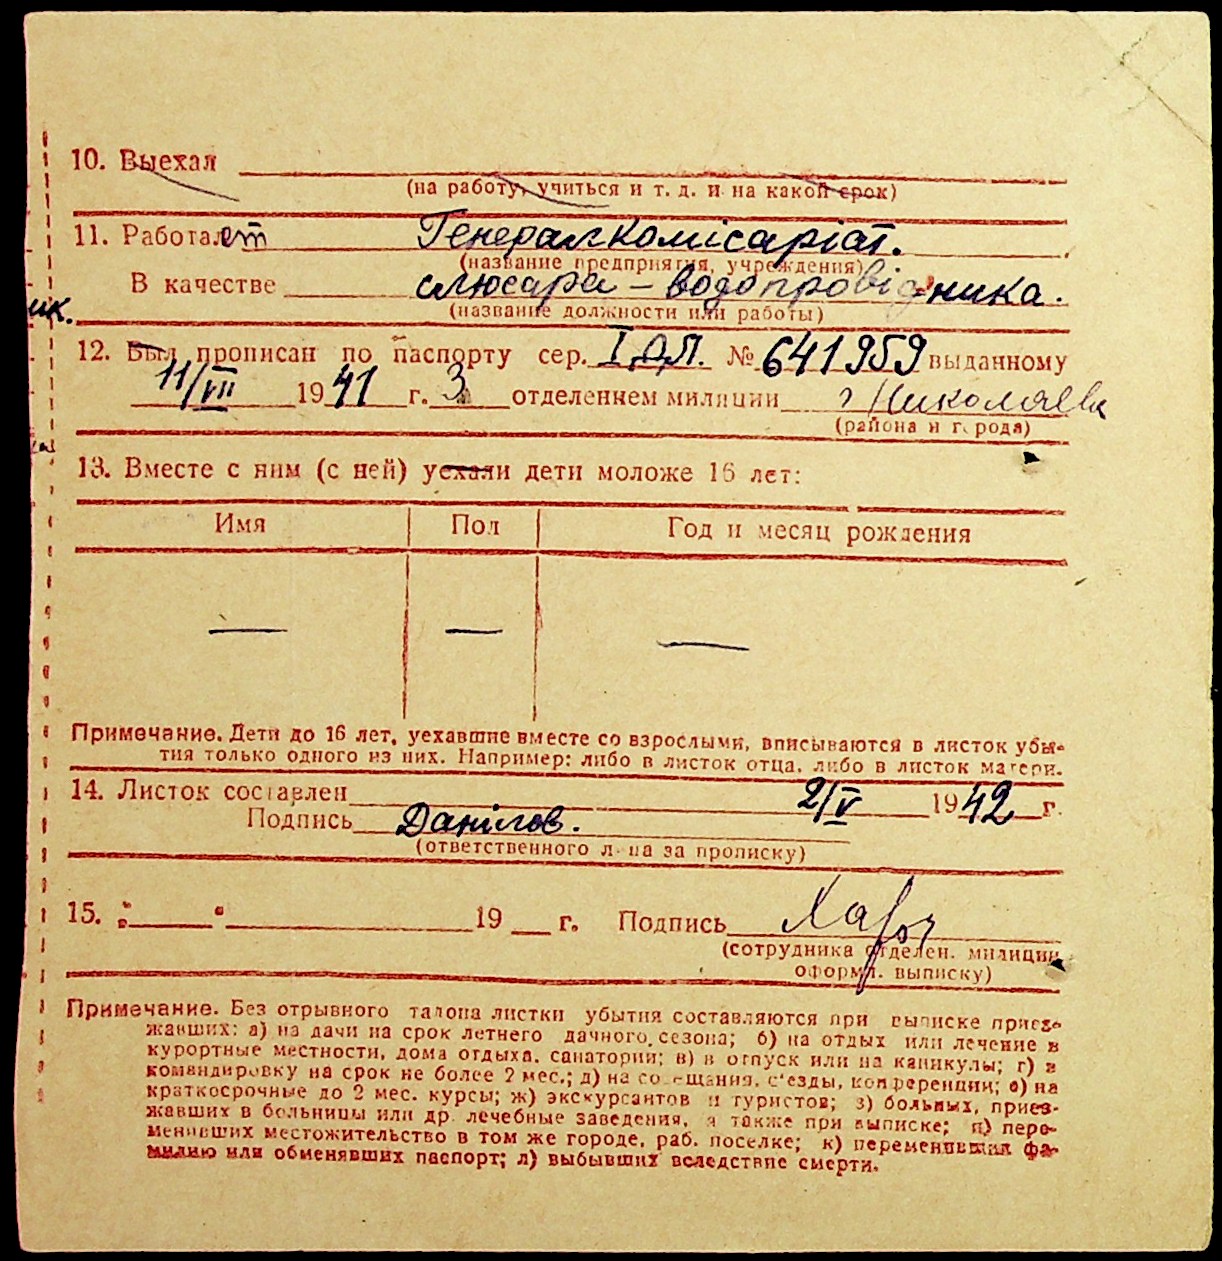 10. Выехал
(на работу, учиться и т. д. и на какой срок)
11. Работает Генералкомісаріат.
(название предприятия, учреждения)
В качестве слюсара – водопровідника.
ик.
(название должности или работы)
12. Был прописан по паспорту сер. І № 641959 выданному
11/VII 1941 г. 3 отделением милиции г Николаева
(района и города)
13. Вместе с ним (с ней) уехали дети моложе 16 лет:
Имя Пол Год и месяц рождения
— — —
Примечание. Дети до 16 лет, уехавшие вместе со взрослыми, вписываются в листок убы-
тия только одного из них. Например: либо в листок отца, либо в листок матери.
14. Листок составлен 2/V 1942 г.
Подпись Данілов.
(ответственного лица за прописку)
15. „ “ 19 г. Подпись
(сотрудника отделен. милиции,
оформл. выписку)
Примечание. Без отрывного талона листки убытия составляются при выписке приез-
жавших: а) на дачи на срок летнего дачного сезона; б) на отдых или лечение в
курортные местности, дома отдыха, санатории; в) в отпуск или на каникулы; г) в
командировку на срок не более 2 мес.; д) на совещания, с'езды, конференции; е) на
краткосрочные до 2 мес. курсы; ж) экскурсантов и туристов; з) больных, приез-
жавших в больницы или др. лечебные заведения, а также при выписке; и) пере-
менивших местожительство в том же городе, раб. поселке; к) переменивших фа-
милию или обменявших паспорт; л) выбывших вследствие смерти.